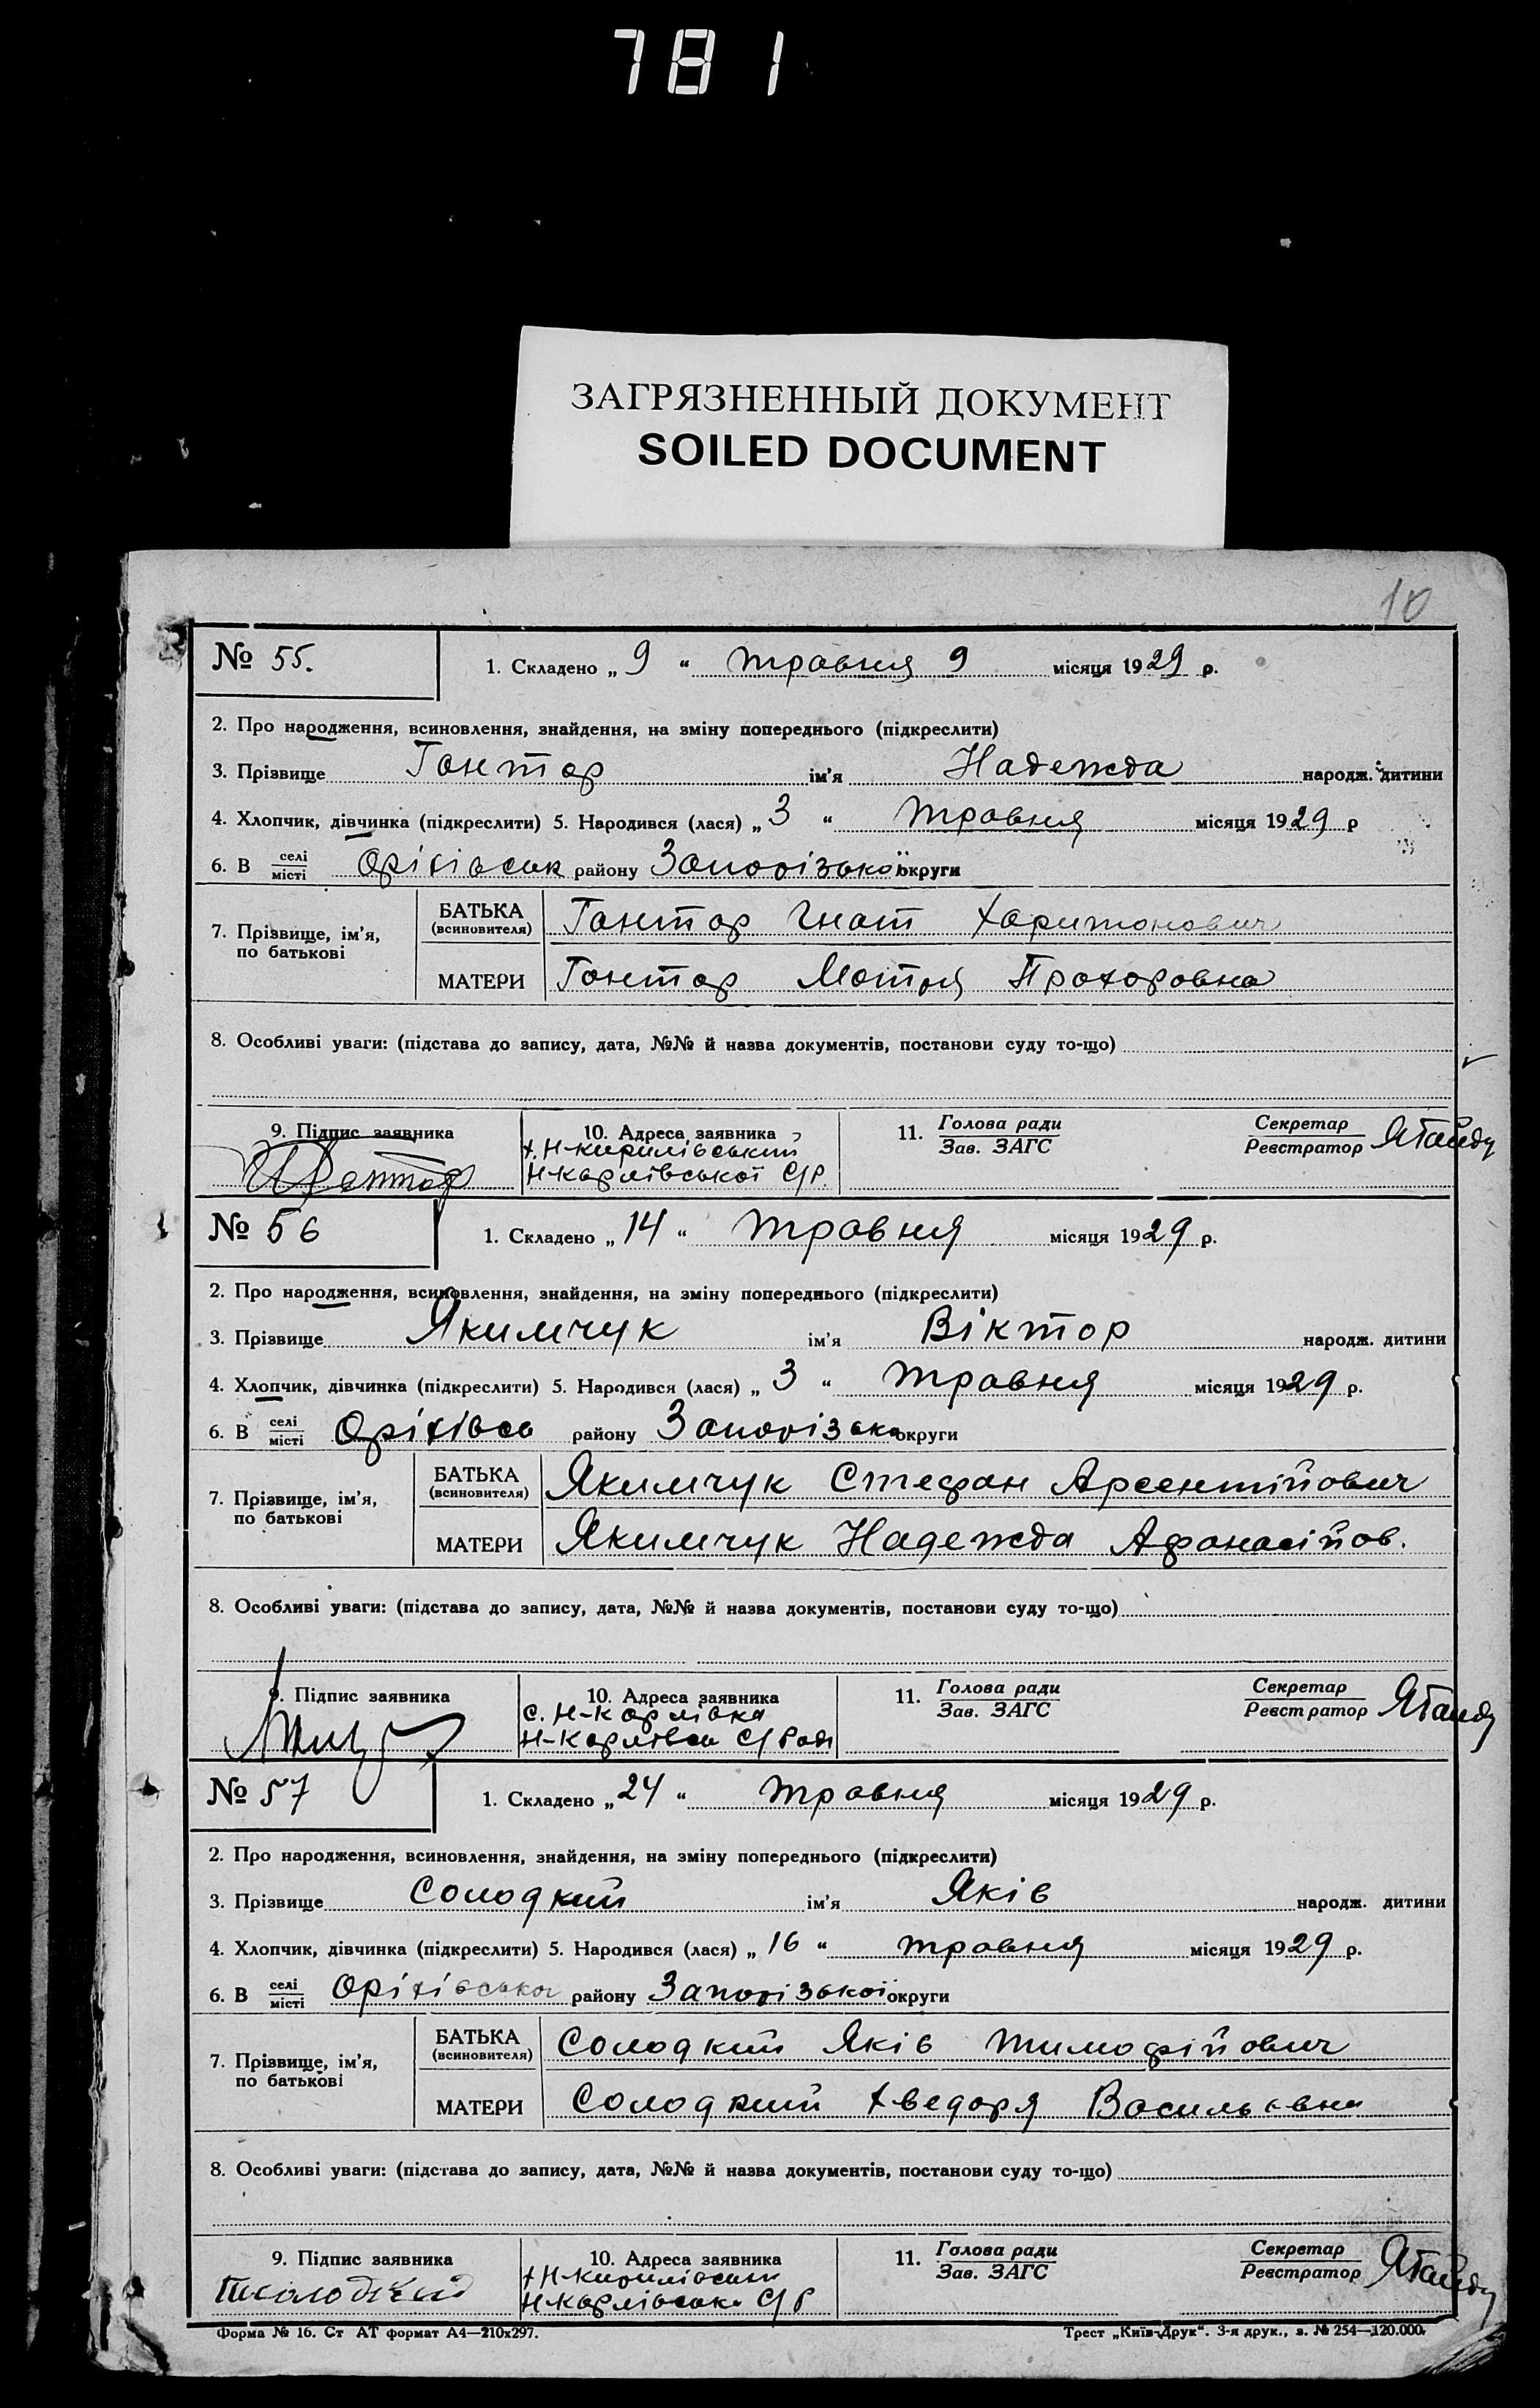 781
ЗАГРЯЗНЕННЫЙ ДОКУМЕНТ
SOILED DOCUMENT
10
№ 55. 1. Складено „ 9 “ травня 9 місяця 1929 р.
2. Про народження, всиновлення, знайдення, на зміну попереднього (підкреслити)
3. Прізвище Гонтар ім’я Надежда народж. дитини
4. Хлопчик, дівчинка (підкреслити) 5. Народився (лася) „ 3 “ травня місяця 1929 р
6. В селі/місті Оріхівськ району Запорізької округи
7. Прізвище, ім’я, по батькові
БАТЬКА (всиновителя) Гонтар Гнат Харитонович
МАТЕРИ Гонтар Мотря Прохоровна
8. Особливі уваги: (підстава до запису, дата, №№ й назва документів, постанови суду то-що)
9. Підпис заявника 10. Адреса заявника 11. Голова ради/Зав. ЗАГС Секретар/Реєстратор
х. Н-Кирилівський
Н-Карлівської С/Р
№ 56 1. Складено „ 14 “ травня місяця 1929 р.
2. Про народження, всиновлення, знайдення, на зміну попереднього (підкреслити)
3. Прізвище Якимчук ім’я Віктор народж. дитини
4. Хлопчик, дівчинка (підкреслити) 5. Народився (лася) „ 3 “ травня місяця 1929 р.
6. В селі/місті Оріхівсь району Запорізько округи
7. Прізвище, ім’я, по батькові
БАТЬКА (всиновителя) Якимчук Стефан Арсентійович
МАТЕРИ Якимчук Надежда Афанасійов.
8. Особливі уваги: (підстава до запису, дата, №№ й назва документів, постанови суду то-що)
9. Підпис заявника 10. Адреса заявника 11. Голова ради/Зав. ЗАГС Секретар/Реєстратор
с. Н-Карлівка
Н-Карлівсь С/Раді
№ 57 1. Складено „ 24 “ травня місяця 1929 р.
2. Про народження, всиновлення, знайдення, на зміну попереднього (підкреслити)
3. Прізвище Солодкий ім’я Яків народж. дитини
4. Хлопчик, дівчинка (підкреслити) 5. Народився (лася) „ 16 “ травня місяця 1929 р.
6. В селі/місті Оріхівсько району Запорізької округи
7. Прізвище, ім’я, по батькові
БАТЬКА (всиновителя) Солодкий Яків Тимофійович
МАТЕРИ Солодкий Хведоря Васильевна
8. Особливі уваги: (підстава до запису, дата, №№ й назва документів, постанови суду то-що)
9. Підпис заявника 10. Адреса заявника 11. Голова ради/Зав. ЗАГС Секретар/Реєстратор
х Н-Кирилівськи
Н-Карлівсько С/Р
Форма № 16. Ст АТ формат А4—210х297. Трест „Київ-Друк“. 3-я друк., з. № 254—120.000.